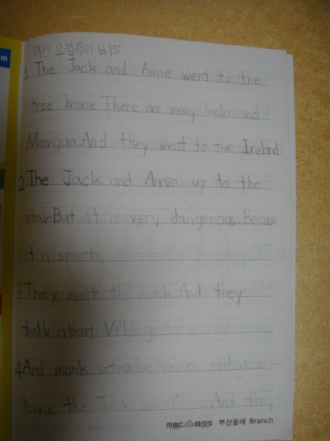 요점정리 #15
1. The Jack and Annie went to the
tree house There are many books and
Morgan. And they went to the Ireland
2. The Jack and Annie up to the
stair. But it is very dangerous. Because
it is smooth
3. They meet the monk. And they
talk about Vikings
4. And monk introduce a religious
house the Jack and And they
MBC 부산동래 Branch